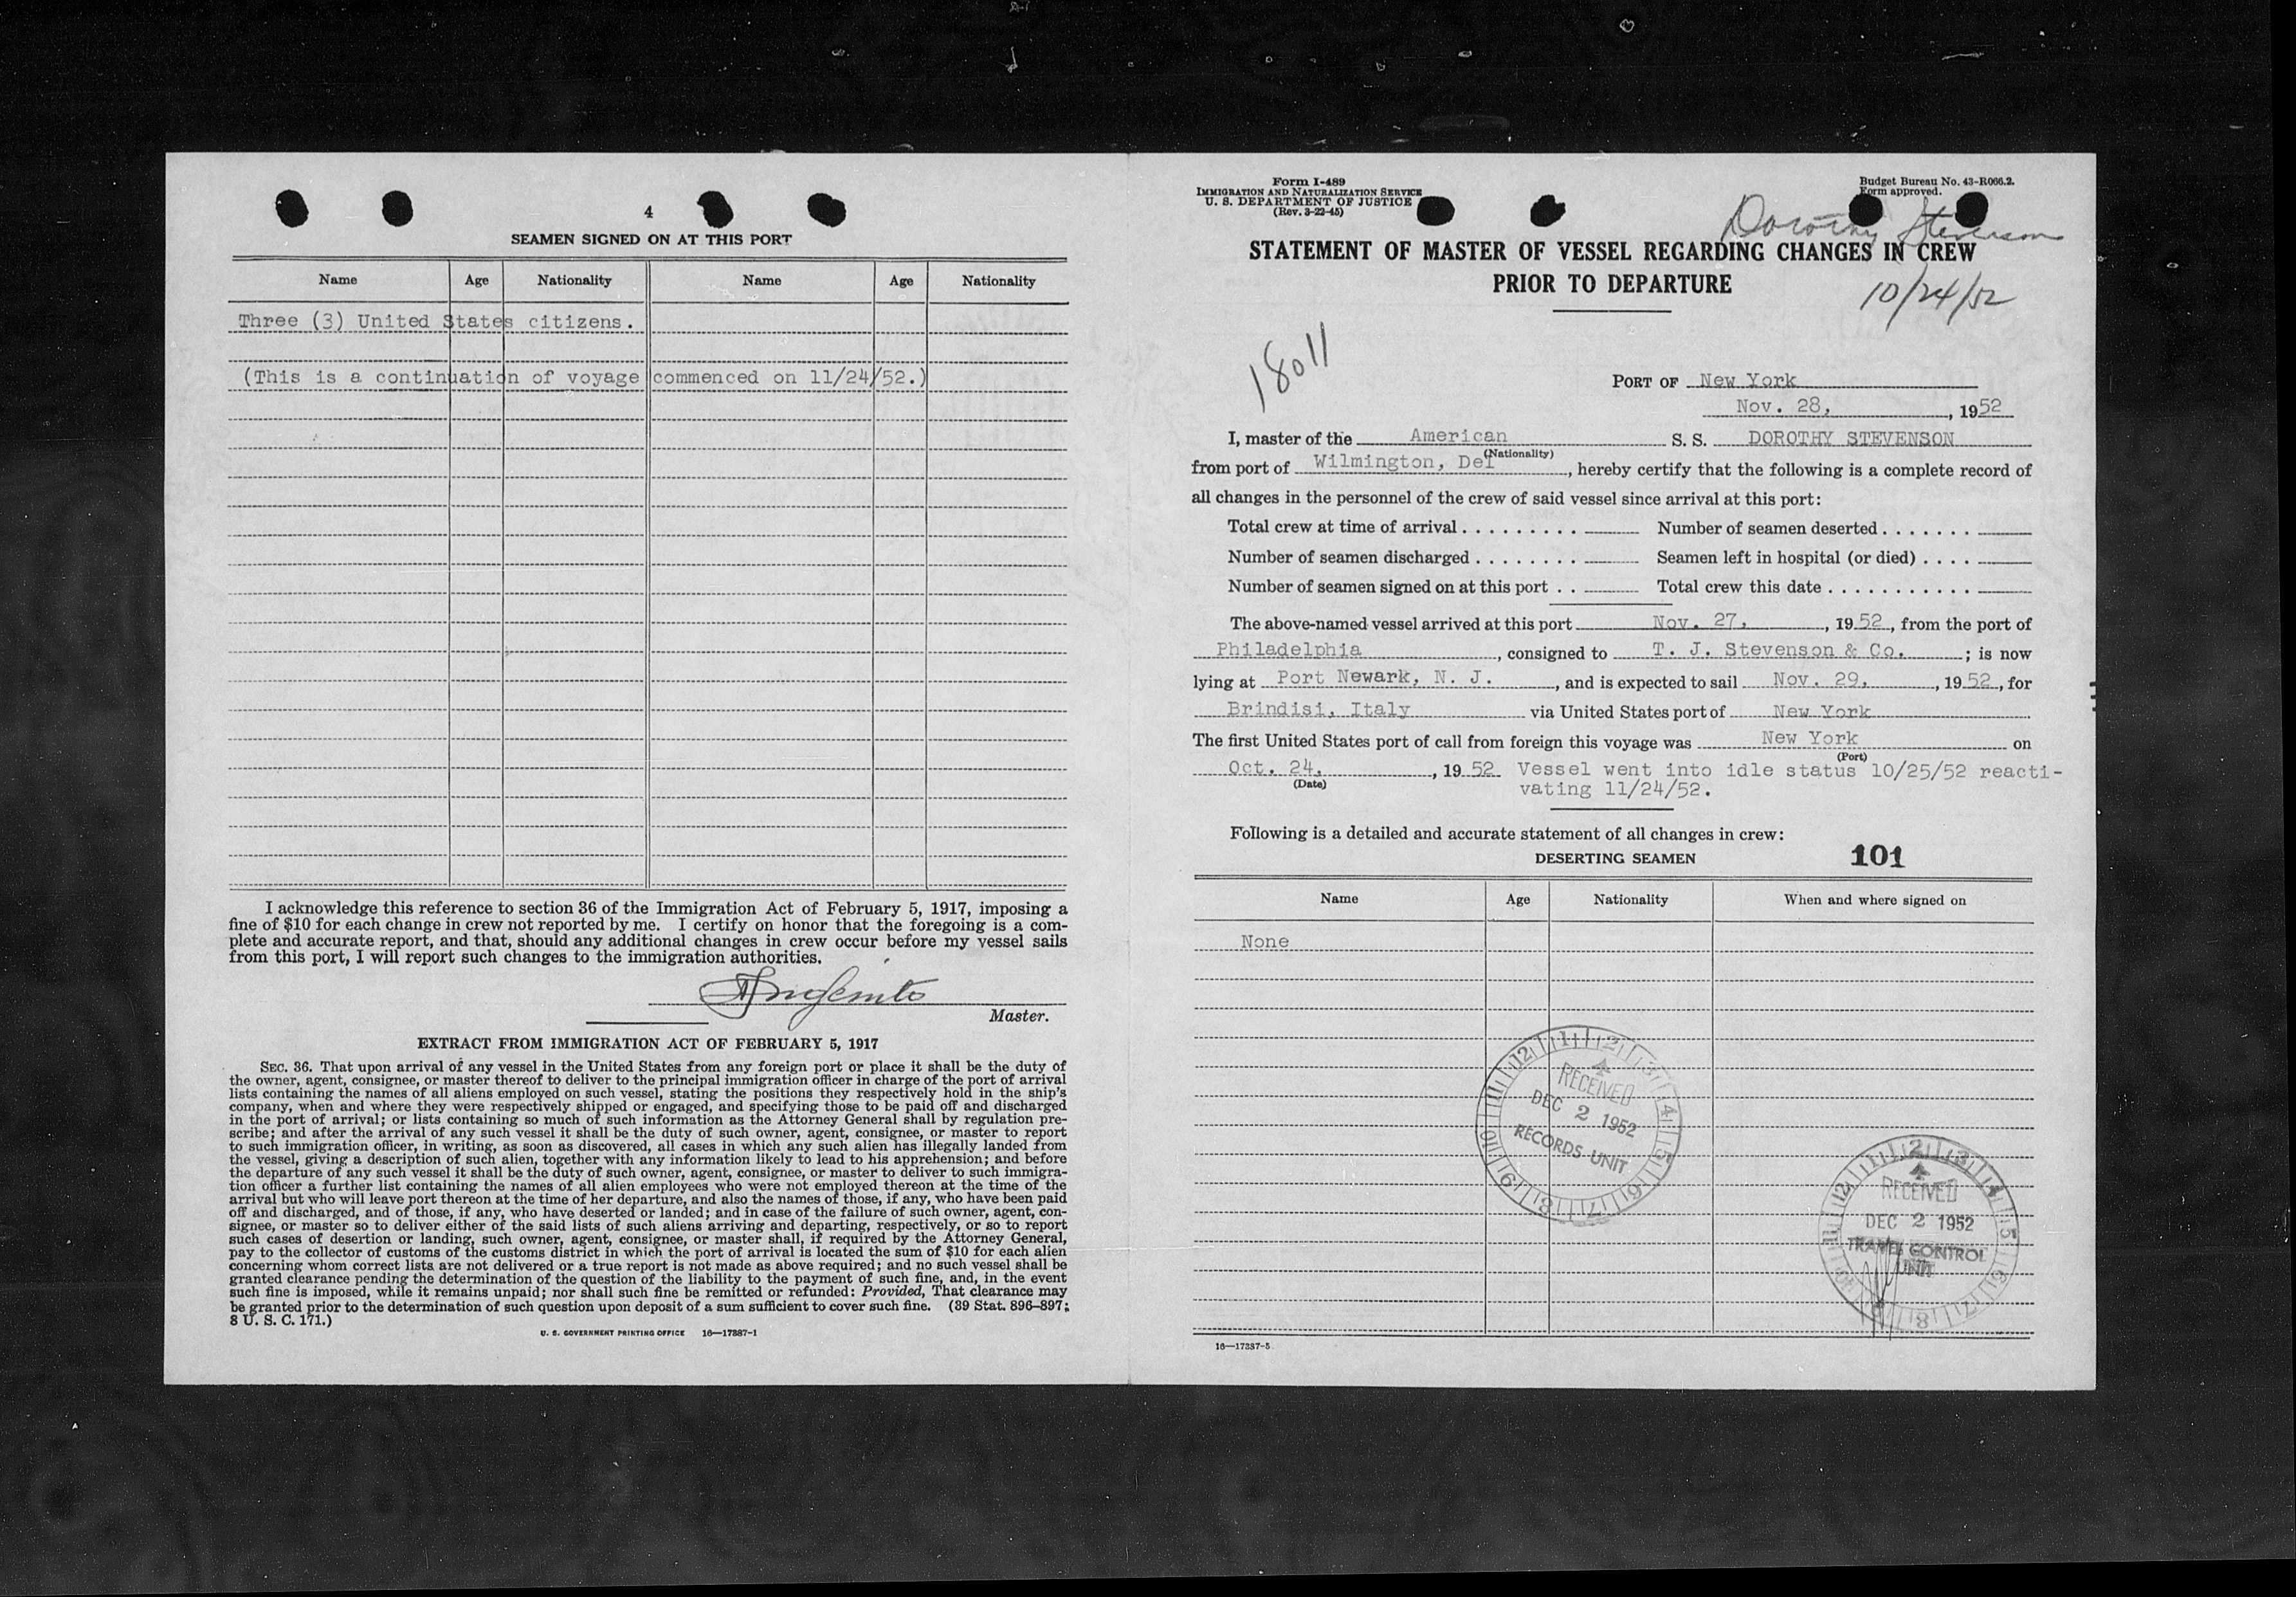 4
SEAMEN SIGNED ON AT THIS PORT
Name Age Nationality Name Age Nationality
Three (3) United States citizens.
(This is a continuation of voyage commenced on 11/24/52.)
I acknowledge this reference to section 36 of the Immigration Act of February 5, 1917, imposing a
fine of $10 for each change in crew not reported by me. I certify on honor that the foregoing is a com-
plete and accurate report, and that, should any additional changes in crew occur before my vessel sails
from this port, I will report such changes to the immigration authorities.
Master.
EXTRACT FROM IMMIGRATION ACT OF FEBRUARY 5, 1917
SEC. 36. That upon arrival of any vessel in the United States from any foreign port or place it shall be the duty of
the owner, agent, consignee, or master thereof to deliver to the principal immigration officer in charge of the port of arrival
lists containing the names of all aliens employed on such vessel, stating the positions they respectively hold in the ship's
company, when and where they were respectively shipped or engaged, and specifying those to be paid off and discharged
in the port of arrival; or lists containing so much of such information as the Attorney General shall by regulation pre-
scribe; and after the arrival of any such vessel it shall be the duty of such owner, agent, consignee, or master to report
to such immigration officer, in writing, as soon as discovered, all cases in which any such alien has illegally landed from
the vessel, giving a description of such alien, together with any information likely to lead to his apprehension; and before
the departure of any such vessel it shall be the duty of such owner, agent, consignee, or master to deliver to such immigra-
tion officer a further list containing the names of all alien employees who were not employed thereon at the time of the
arrival but who will leave port thereon at the time of her departure, and also the names of those, if any, who have been paid
off and discharged, and of those, if any, who have deserted or landed; and in case of the failure of such owner, agent, con-
signee, or master so to deliver either of the said lists of such aliens arriving and departing, respectively, or so to report
such cases of desertion or landing, such owner, agent, consignee, or master shall, if required by the Attorney General,
pay to the collector of customs of the customs district in which the port of arrival is located the sum of $10 for each alien
concerning whom correct lists are not delivered or a true report is not made as above required; and no such vessel shall be
granted clearance pending the determination of the question of the liability to the payment of such fine, and, in the event
such fine is imposed, while it remains unpaid; nor shall such fine be remitted or refunded: Provided, That clearance may
be granted prior to the determination of such question upon deposit of a sum sufficient to cover such fine. (39 Stat. 896–897;
8 U. S. C. 171.)
U. S. GOVERNMENT PRINTING OFFICE 16—17387-1
Form I-489
IMMIGRATION AND NATURALIZATION SERVICE
U. S. DEPARTMENT OF JUSTICE
(Rev. 3-22-45)
Budget Bureau No. 43-R066.2.
Form approved.
Dorothy Stevenson
STATEMENT OF MASTER OF VESSEL REGARDING CHANGES IN CREW
PRIOR TO DEPARTURE
10/24/52
18011
PORT OF New York
Nov. 28, , 1952
I, master of the American S. S. DOROTHY STEVENSON
(Nationality)
from port of Wilmington, Del , hereby certify that the following is a complete record of
all changes in the personnel of the crew of said vessel since arrival at this port:
Total crew at time of arrival . . . . . . . . . Number of seamen deserted . . . . . . .
Number of seamen discharged . . . . . . . . Seamen left in hospital (or died) . . . .
Number of seamen signed on at this port . . Total crew this date . . . . . . . . . . .
The above-named vessel arrived at this port Nov. 27, , 1952, from the port of
Philadelphia , consigned to T. J. Stevenson & Co. ; is now
lying at Port Newark, N. J. , and is expected to sail Nov. 29, , 1952, for
Brindisi, Italy via United States port of New York
The first United States port of call from foreign this voyage was New York on
(Port)
Oct. 24, , 1952 Vessel went into idle status 10/25/52 reacti-
(Date) vating 11/24/52.
Following is a detailed and accurate statement of all changes in crew:
DESERTING SEAMEN 101
Name Age Nationality When and where signed on
None
12 1 2 3 4 5 6 7 8 9 10 11
RECEIVED
DEC 2 1952
RECORDS UNIT
12 1 2 3 4 5 6 7 8 9 10 11
RECEIVED
DEC 2 1952
TRAVEL CONTROL
UNIT
16—17387-5